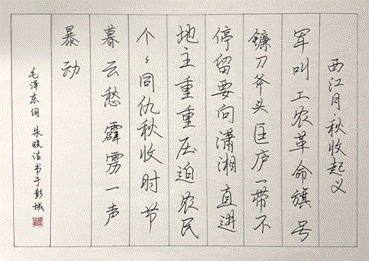 西江月秋收起义
军叫工农革命旗号
镰刀斧头匡庐一带不
停留要向潇湘直进
地主重重压迫农民
个々同仇秋收时节
暮云愁霹雳一声
暴动
毛泽东词 书于彭城